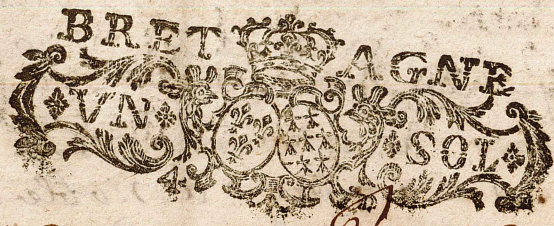 BRETAGNE
VN SOL